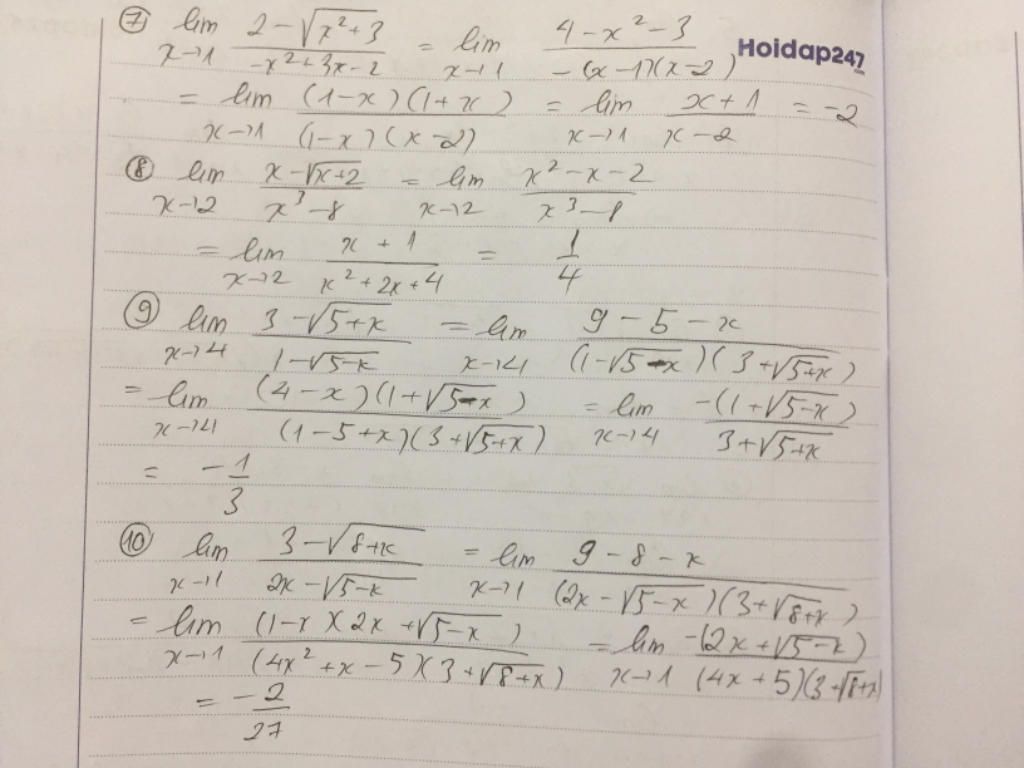 ⑦ lim x→1 (2 - √(x² + 3))/(-x² + 3x - 2) = lim x→1 (4 - x² - 3)/(-(x - 1)(x - 2))
Hoidap247.com
= lim x→1 ((1 - x)(1 + x))/((1 - x)(x - 2)) = lim x→1 (x + 1)/(x - 2) = -2
⑧ lim x→2 (x - √(x + 2))/(x³ - 8) = lim x→2 (x² - x - 2)/(x³ - 8)
= lim x→2 (x + 1)/(x² + 2x + 4) = 1/4
⑨ lim x→4 (3 - √(5 + x))/(1 - √(5 - x)) = lim x→4 (9 - 5 - x)/((1 - √(5 - x))(3 + √(5 + x)))
= lim x→4 ((4 - x)(1 + √(5 - x)))/((1 - 5 + x)(3 + √(5 + x))) = lim x→4 (-(1 + √(5 - x)))/(3 + √(5 + x))
= -1/3
⑩ lim x→1 (3 - √(8 + x))/(2x - √(5 - x)) = lim x→1 (9 - 8 - x)/((2x - √(5 - x))(3 + √(8 + x)))
= lim x→1 ((1 - x)(2x + √(5 - x)))/((4x² + x - 5)(3 + √(8 + x))) = lim x→1 (-(2x + √(5 - x)))/((4x + 5)(3 + √(8 + x)))
= -2/27